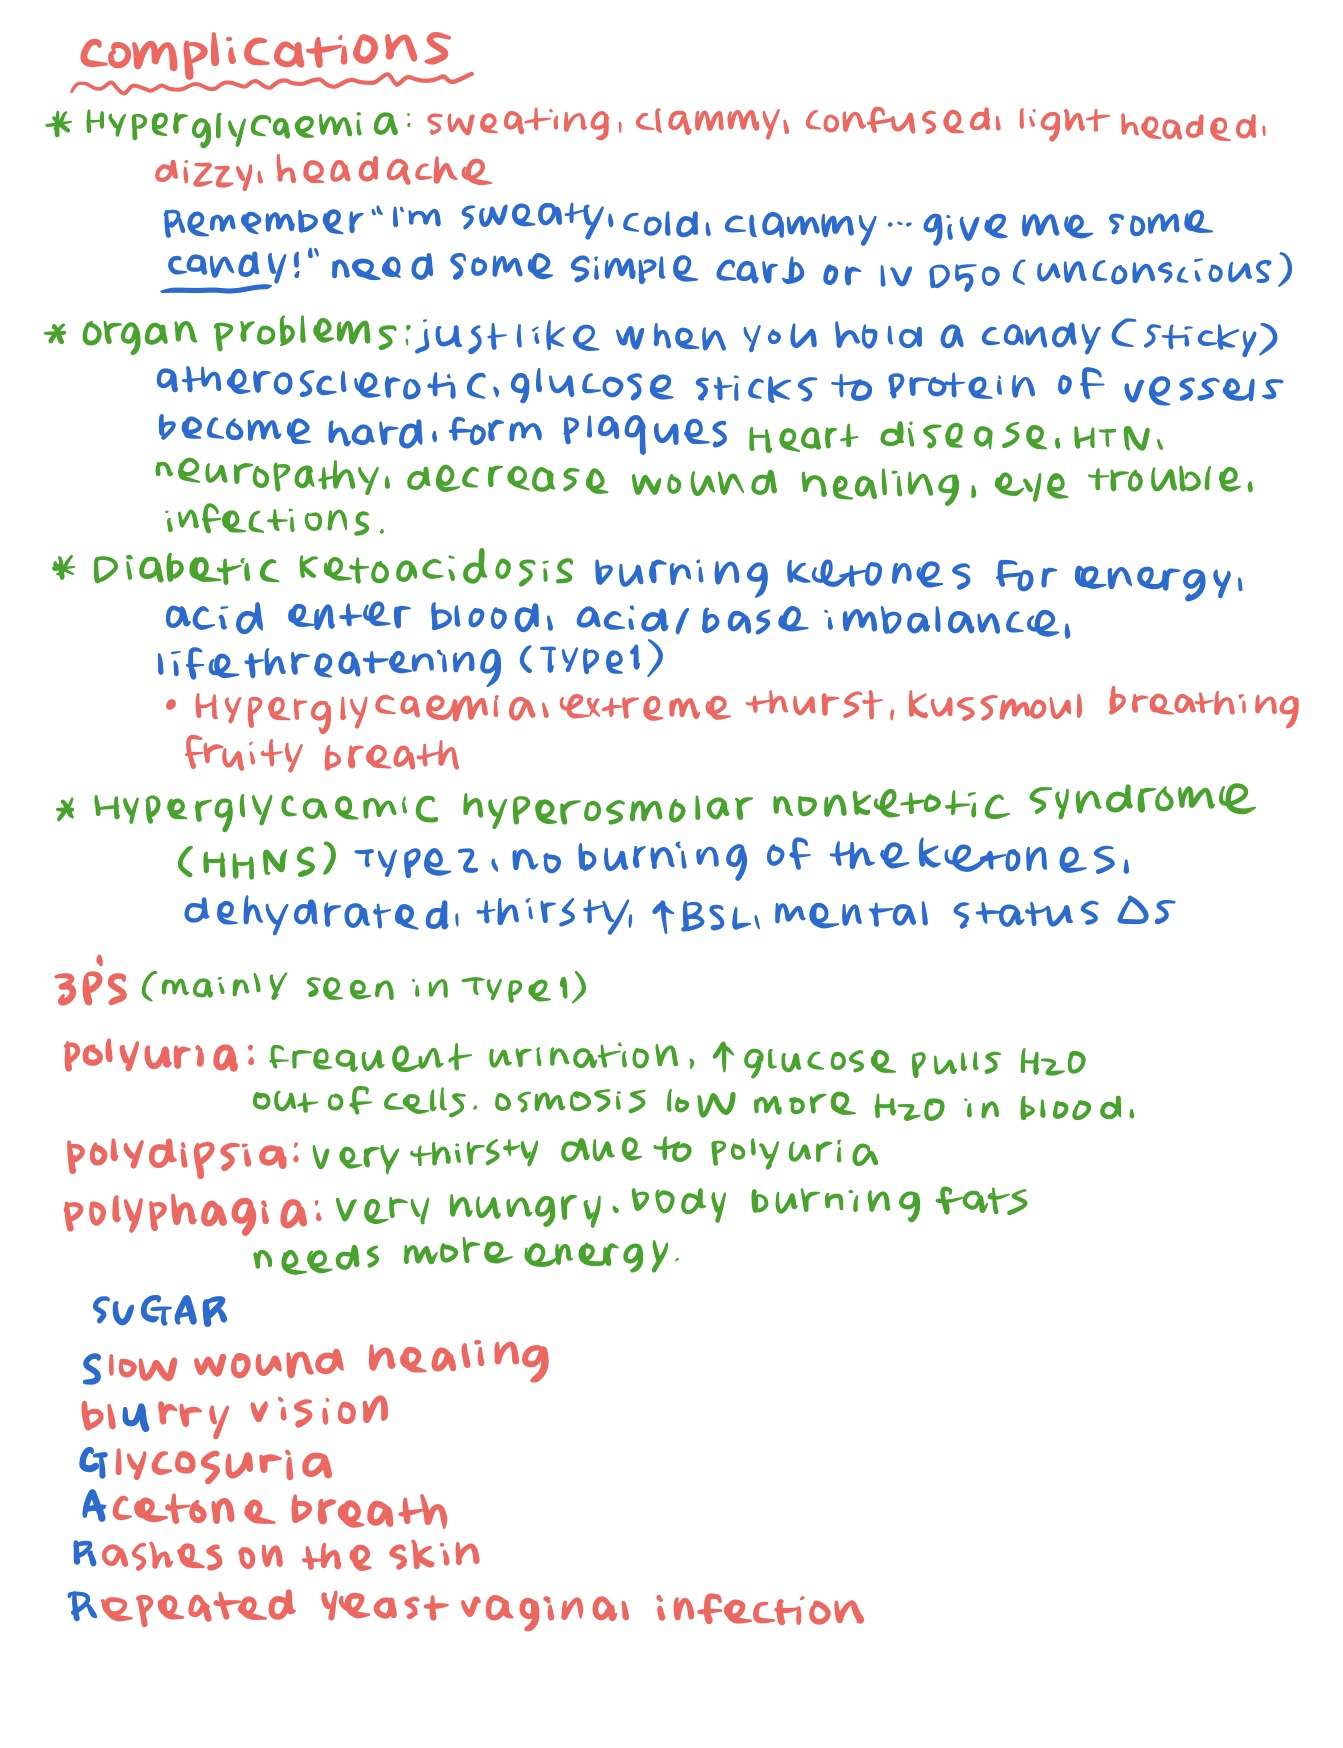 complications
* Hyperglycaemia: sweating, clammy, confused, light headed,
dizzy, headache
Remember "I'm sweaty, cold, clammy... give me some
candy!" need some simple carb or IV D50 (unconscious)
* organ problems: just like when you hold a candy (sticky)
atherosclerotic, glucose sticks to protein of vessels
become hard, form plaques Heart disease, HTN,
neuropathy, decrease wound healing, eye trouble,
infections.
* Diabetic ketoacidosis burning ketones for energy,
acid enter blood, acid/base imbalance,
life threatening (Type1)
• Hyperglycaemia, extreme thurst, Kussmoul breathing
fruity breath
* Hyperglycaemic hyperosmolar nonketotic syndrome
(HHNS) Type 2, no burning of the ketones,
dehydrated, thirsty, ↑BSL, mental status Δs
3P's (mainly seen in Type1)
polyuria: frequent urination, ↑ glucose pulls H2O
out of cells. osmosis low more H2O in blood.
polydipsia: very thirsty due to polyuria
polyphagia: very hungry. body burning fats
needs more energy.
SUGAR
Slow wound healing
blurry vision
Glycosuria
Acetone breath
Rashes on the skin
Repeated yeast vaginal infection